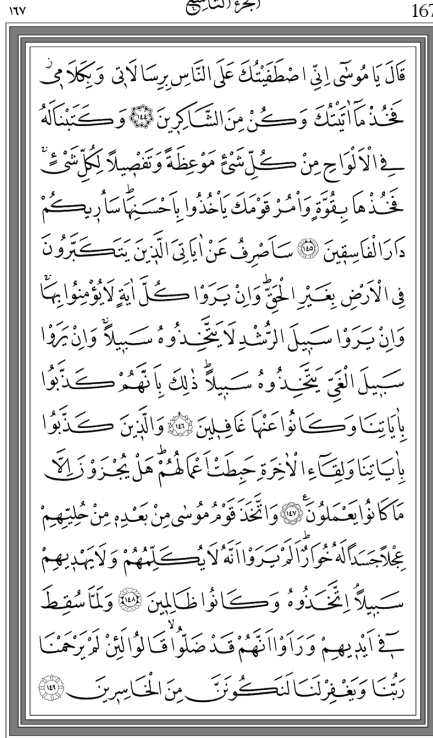 ١٦٧ الجزء التاسع 167
قَالَ يَا مُوسٰٓى اِنِّي اصْطَفَيْتُكَ عَلَى النَّاسِ بِرِسَالَاتٖي وَبِكَلَامٖيۘ
فَخُذْ مَٓا اٰتَيْتُكَ وَكُنْ مِنَ الشَّاكِرٖينَ ﴿١٤٤﴾ وَكَتَبْنَا لَهُ
فِي الْاَلْوَاحِ مِنْ كُلِّ شَيْءٍ مَوْعِظَةً وَتَفْصٖيلاً لِكُلِّ شَيْءٍۚ
فَخُذْهَا بِقُوَّةٍ وَأْمُرْ قَوْمَكَ يَأْخُذُوا بِاَحْسَنِهَاۜ سَاُرٖيكُمْ
دَارَ الْفَاسِقٖينَ ﴿١٤٥﴾ سَاَصْرِفُ عَنْ اٰيَاتِيَ الَّذٖينَ يَتَكَبَّرُونَ
فِي الْاَرْضِ بِغَيْرِ الْحَقِّۜ وَاِنْ يَرَوْا كُلَّ اٰيَةٍ لَا يُؤْمِنُوا بِهَاۚ
وَاِنْ يَرَوْا سَبٖيلَ الرُّشْدِ لَا يَتَّخِذُوهُ سَبٖيلاًۚ وَاِنْ يَرَوْا
سَبٖيلَ الْغَيِّ يَتَّخِذُوهُ سَبٖيلاًۜ ذٰلِكَ بِاَنَّهُمْ كَذَّبُوا
بِاٰيَاتِنَا وَكَانُوا عَنْهَا غَافِلٖينَ ﴿١٤٦﴾ وَالَّذٖينَ كَذَّبُوا
بِاٰيَاتِنَا وَلِقَٓاءِ الْاٰخِرَةِ حَبِطَتْ اَعْمَالُهُمْۜ هَلْ يُجْزَوْنَ اِلَّا
مَا كَانُوا يَعْمَلُونَ۟ ﴿١٤٧﴾ وَاتَّخَذَ قَوْمُ مُوسٰى مِنْ بَعْدِهٖ مِنْ حُلِيِّهِمْ
عِجْلاً جَسَداً لَهُ خُوَارٌۜ اَلَمْ يَرَوْا اَنَّهُ لَا يُكَلِّمُهُمْ وَلَا يَهْدٖيهِمْ
سَبٖيلاًۢ اِتَّخَذُوهُ وَكَانُوا ظَالِمٖينَ ﴿١٤٨﴾ وَلَمَّا سُقِطَ
فٖٓي اَيْدٖيهِمْ وَرَاَوْا اَنَّهُمْ قَدْ ضَلُّواۙ قَالُوا لَئِنْ لَمْ يَرْحَمْنَا
رَبُّنَا وَيَغْفِرْ لَنَا لَنَكُونَنَّ مِنَ الْخَاسِرٖينَ ﴿١٤٩﴾